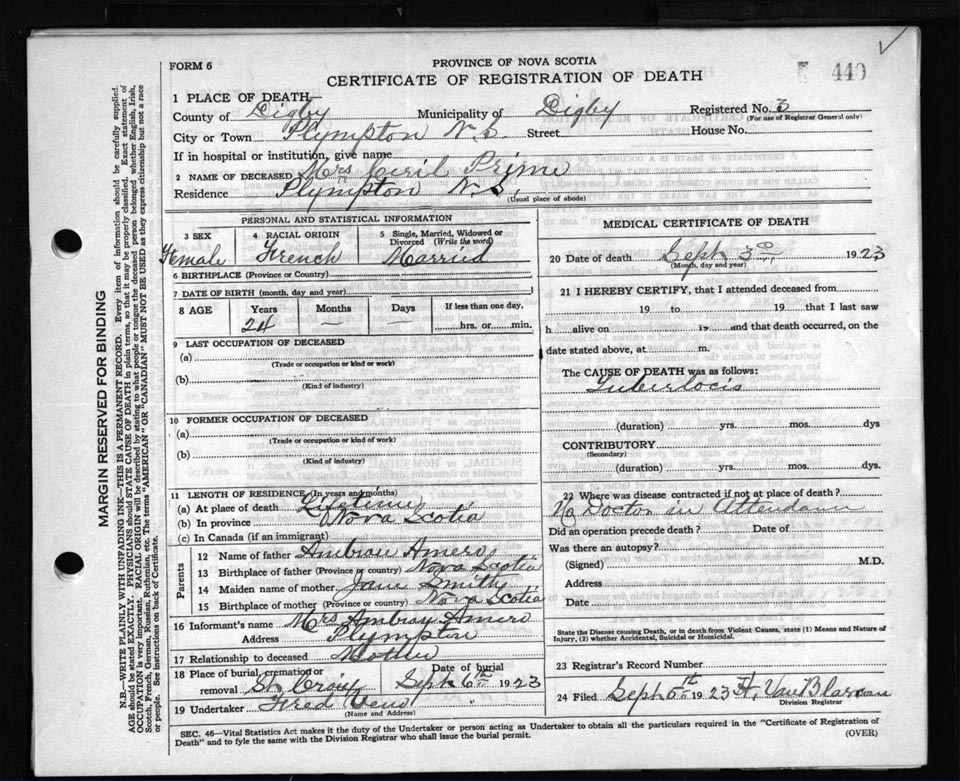 FORM 6
PROVINCE OF NOVA SCOTIA
CERTIFICATE OF REGISTRATION OF DEATH
440
1 PLACE OF DEATH—
County of Digby Municipality of Digby Registered No. 3
(For use of Registrar General only)
City or Town Plympton N.S. Street House No.
If in hospital or institution, give name
2 NAME OF DECEASED Mrs Cyril Prime
Residence Plympton N.S.
(Usual place of abode)
PERSONAL AND STATISTICAL INFORMATION
3 SEX 4 RACIAL ORIGIN 5 Single, Married, Widowed or Divorced (Write the word)
Female French Married
6 BIRTHPLACE (Province or Country)
7 DATE OF BIRTH (month, day and year)
8 AGE Years Months Days If less than one day,
24 — — hrs. or min.
9 LAST OCCUPATION OF DECEASED
(a)
(Trade or occupation or kind or work)
(b)
(Kind of industry)
10 FORMER OCCUPATION OF DECEASED
(a)
(Trade or occupation or kind of work)
(b)
(Kind of industry)
11 LENGTH OF RESIDENCE (In years and months)
(a) At place of death Lifetime
(b) In province Nova Scotia
(c) In Canada (if an immigrant)
Parents
12 Name of father Amero
13 Birthplace of father (Province or country) Nova Scotia
14 Maiden name of mother Jane Smith
15 Birthplace of mother (Province or country) Nova Scotia
16 Informant's name Mrs Amero
Address Plympton
17 Relationship to deceased Mother
18 Place of burial, cremation or removal St. Croix Date of burial Sept 6th 1923
19 Undertaker Fred
(Name and Address)
MEDICAL CERTIFICATE OF DEATH
20 Date of death Sept 3 1923
(Month, day and year)
21 I HEREBY CERTIFY, that I attended deceased from
19 to 19 that I last saw
h alive on 19 and that death occurred, on the
date stated above, at m.
The CAUSE OF DEATH was as follows:
Tuberlocis
(duration) yrs. mos. dys
CONTRIBUTORY
(Secondary)
(duration) yrs. mos. dys.
22 Where was disease contracted if not at place of death?
No Doctor in
Did an operation precede death? Date of
Was there an autopsy?
(Signed) M.D.
Address
Date
State the Disease causing Death, or in death from Violent Causes, state (1) Means and Nature of
Injury, (2) whether Accidental, Suicidal or Homicidal.
23 Registrar's Record Number
24 Filed Sept 1923 H. Van Blarcom
Division Registrar
SEC. 46—Vital Statistics Act makes it the duty of the Undertaker or person acting as Undertaker to obtain all the particulars required in the "Certificate of Registration of
Death" and to fyle the same with the Division Registrar who shall issue the burial permit. (OVER)
MARGIN RESERVED FOR BINDING
N.B.—WRITE PLAINLY WITH UNFADING INK—THIS IS A PERMANENT RECORD. Every item of information should be carefully supplied.
AGE should be stated EXACTLY. PHYSICIANS should STATE CAUSE OF DEATH in plain terms, so that it may be properly classified. Exact statement of
OCCUPATION is very important. RACIAL ORIGIN will be described by stating to what people or tongue the deceased person belonged whether English, Irish,
Scotch, French, German, Russian, Ruthenian, etc. The terms "AMERICAN" OR "CANADIAN" MUST NOT BE USED as they express citizenship but not a race
or people. See instructions on back of Certificate.